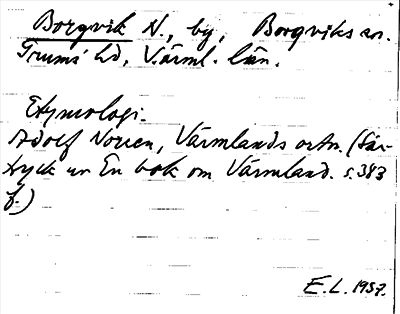 Borgvik N., by, Borgviks sn.
Grums' hd, Värml. län.
Etymologi.
Adolf Noreen, Värmlands ortn. (Sär-
tryck ur En bok om Värmland. s. 383
f.)
E.L. 1937.